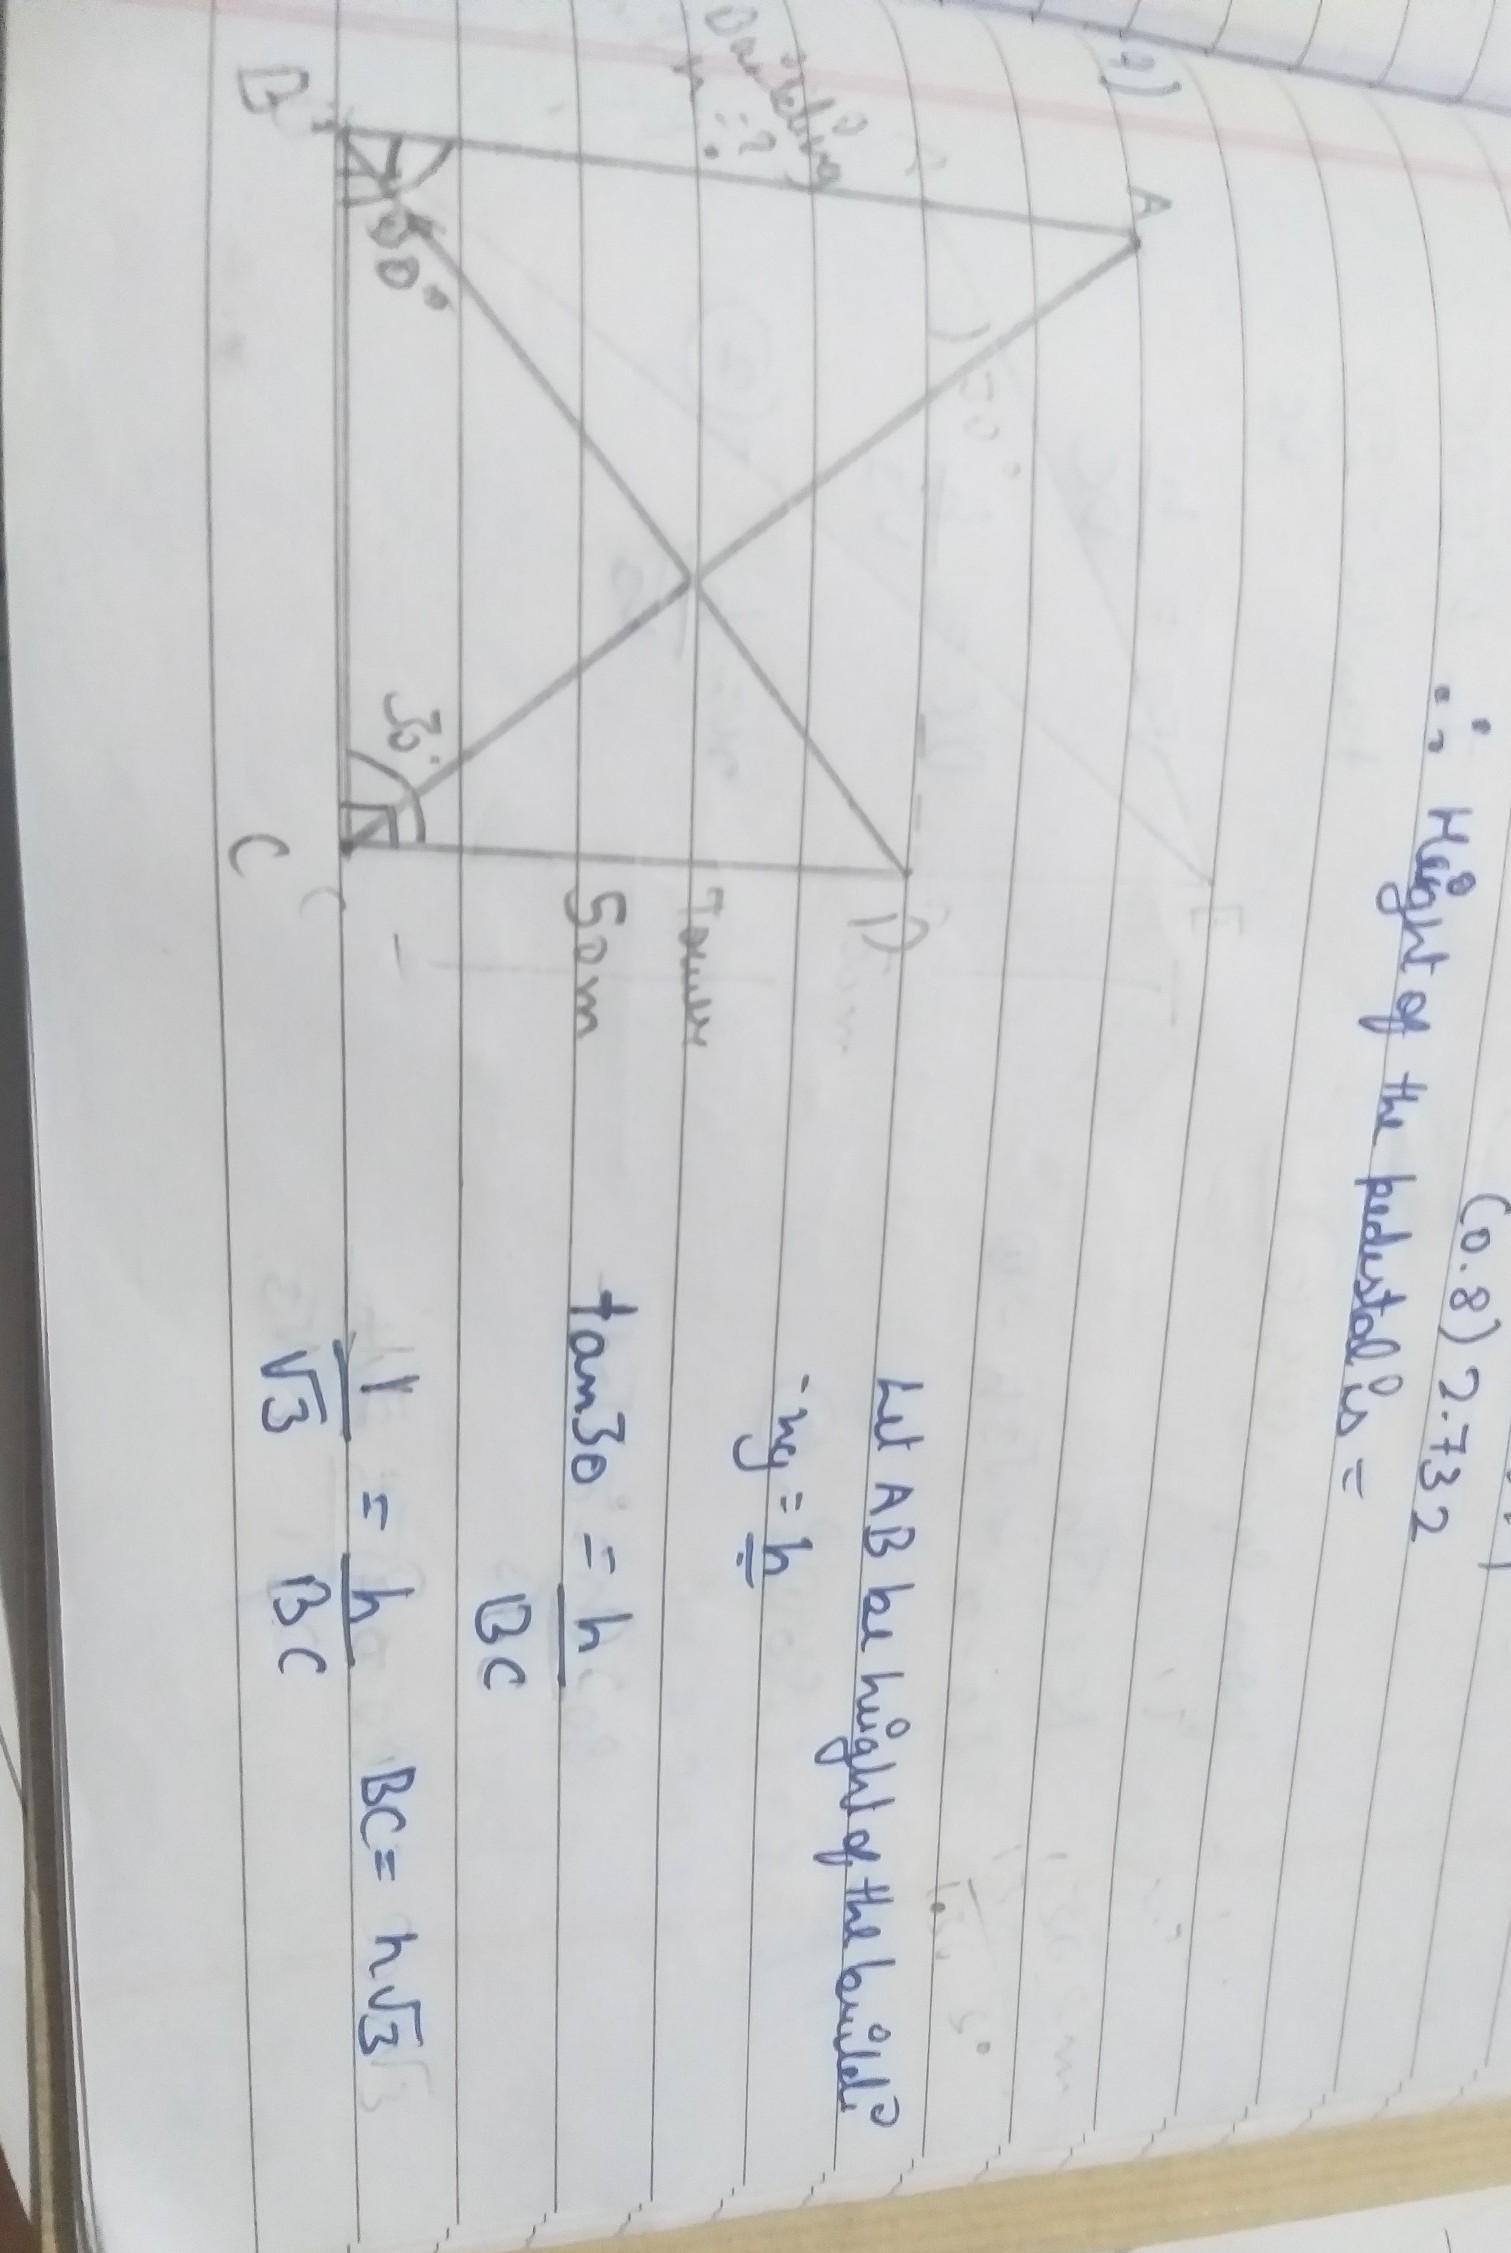 (0.8) 2.732
∴ Height of the pedestal is =
9)
A
Building
h = ?
D
Tower
50 m
30°
30°
B
C
Let AB be height of the buildi
-ng = h
tan 30° = h/BC
1/√3 = h/BC BC = h√3